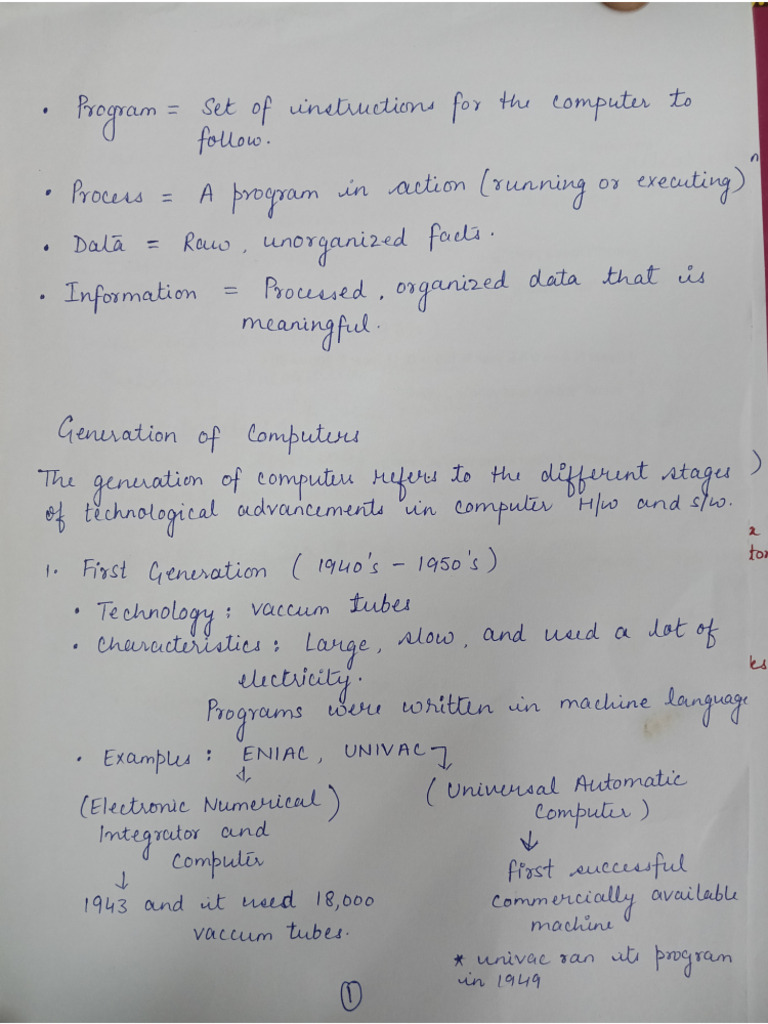 • Program = Set of instructions for the computer to
follow.
• Process = A program in action (running or executing)
• Data = Raw, unorganized facts.
• Information = Processed, organized data that is
meaningful.
Generation of Computers
The generation of computers refers to the different stages
of technological advancements in computer H/w and S/w.
1. First Generation (1940's - 1950's)
• Technology: vaccum tubes
• Characteristics: Large, slow, and used a lot of
electricity.
Programs were written in machine language
• Examples: ENIAC, UNIVAC
(Electronic Numerical)
Integrator and
Computer
↓
1943 and it used 18,000
vaccum tubes.
(Universal Automatic
Computer)
↓
first successful
commercially available
machine
* univac ran its program
in 1949
1